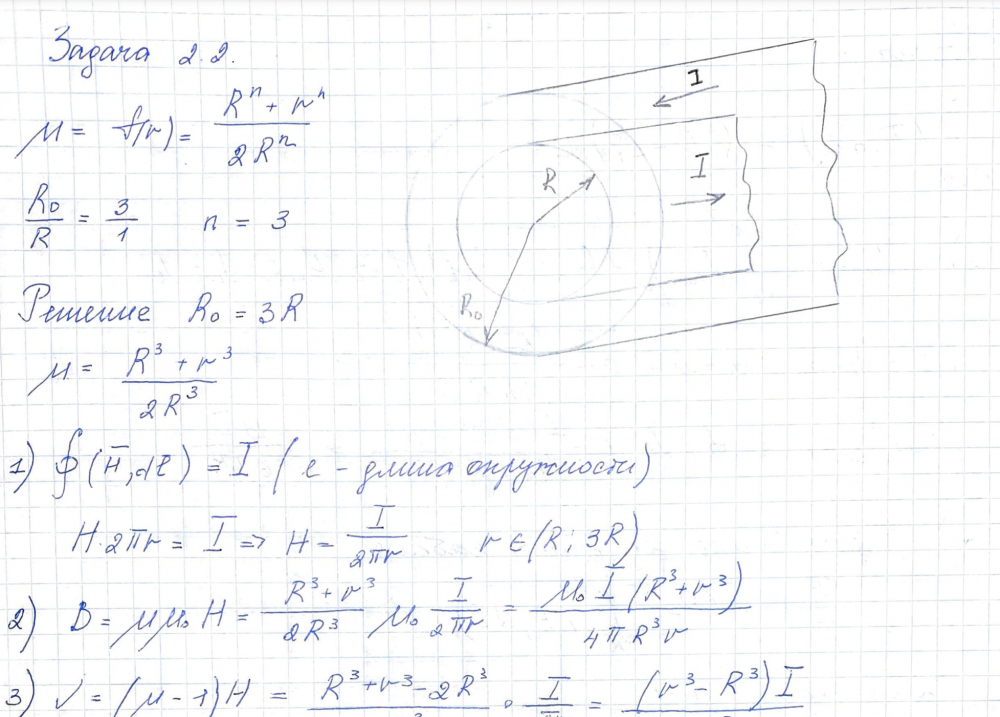 Задача 2.2.
μ = f(r) = (R^n + r^n) / (2R^n)
R₀/R = 3/1    n = 3
I
I
R
R₀
Решение R₀ = 3R
μ = (R³ + r³) / (2R³)
1) ∮(H̄, dℓ) = I (ℓ - длина окружности)
H·2πr = I => H = I / (2πr)    r ∈ (R; 3R)
2) B = μμ₀H = (R³ + r³) / (2R³) μ₀ I / (2πr) = μ₀ I (R³ + r³) / (4πR³r)
3) J = (μ - 1)H = R³ + r³ - 2R³ · I = (r³ - R³) I